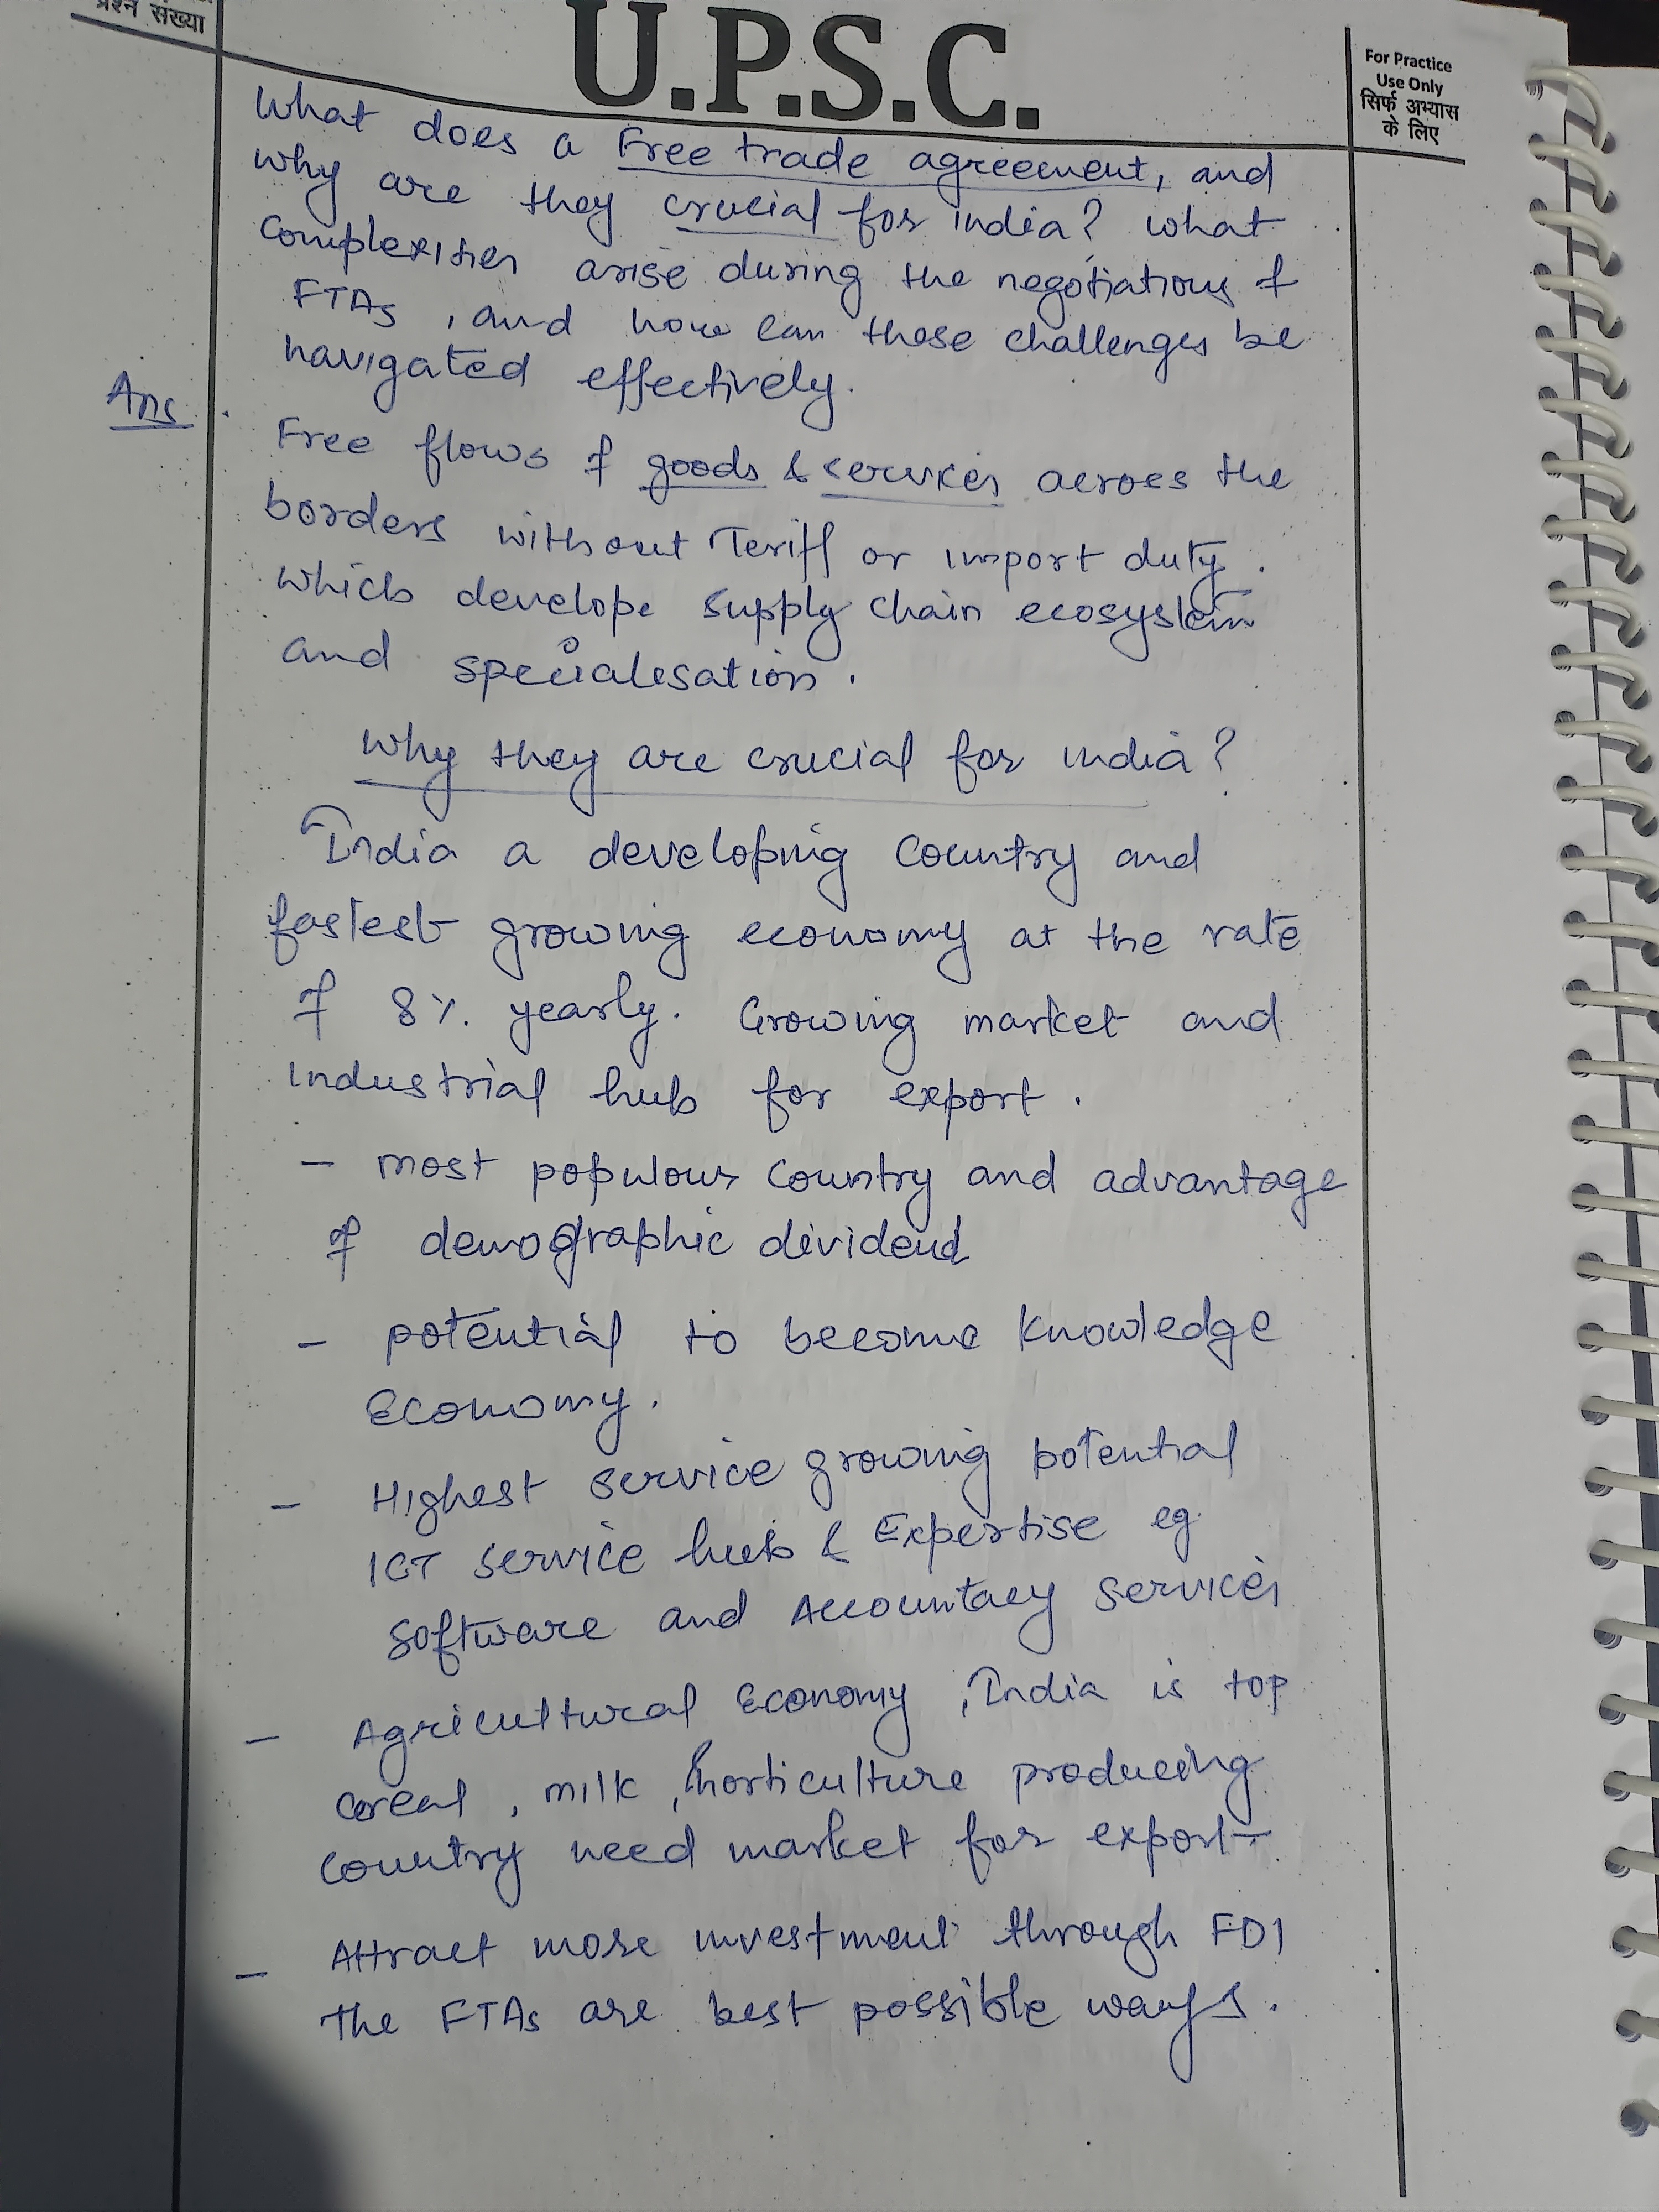 प्रश्न संख्या
U.P.S.C.
For Practice
Use Only
सिर्फ अभ्यास
के लिए
What does a Free trade agreement, and
why are they crucial for india? what
complexities arise during the negotiations of
FTAs, and how can these challenges be
navigated effectively.
Ans.
Free flows of goods & services across the
borders without Teriff or import duty.
which develope supply chain ecosystem
and specialesation.
Why they are crucial for india?
India a developing country and
fastest growing economy at the rate
of 8% yearly. Growing market and
industrial hub for export.
- most populous country and advantage
of demographic dividend
- potential to become knowledge
Economy.
- Highest service growing potential
ICT service hub & Expertise eg.
software and Accountacy services
- Agricultural Economy, India is top
cereal, milk, horticulture producing
country need market for export
- Attract more investment through FDI
the FTAs are best possible ways.